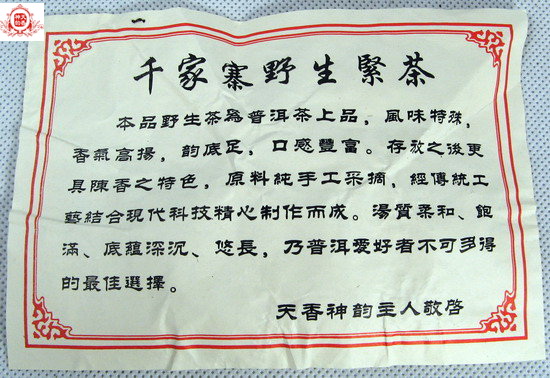 千家寨野生緊茶
本品野生茶為普洱茶上品，風味特殊，
香氣高揚，韵底足，口感豐富。存放之後更
具陳香之特色，原料純手工采摘，經傳統工
藝結合現代科技精心制作而成。湯質柔和、飽
滿、底蘊深沉、悠長，乃普洱愛好者不可多得
的最佳選擇。
天香神韵主人敬啓